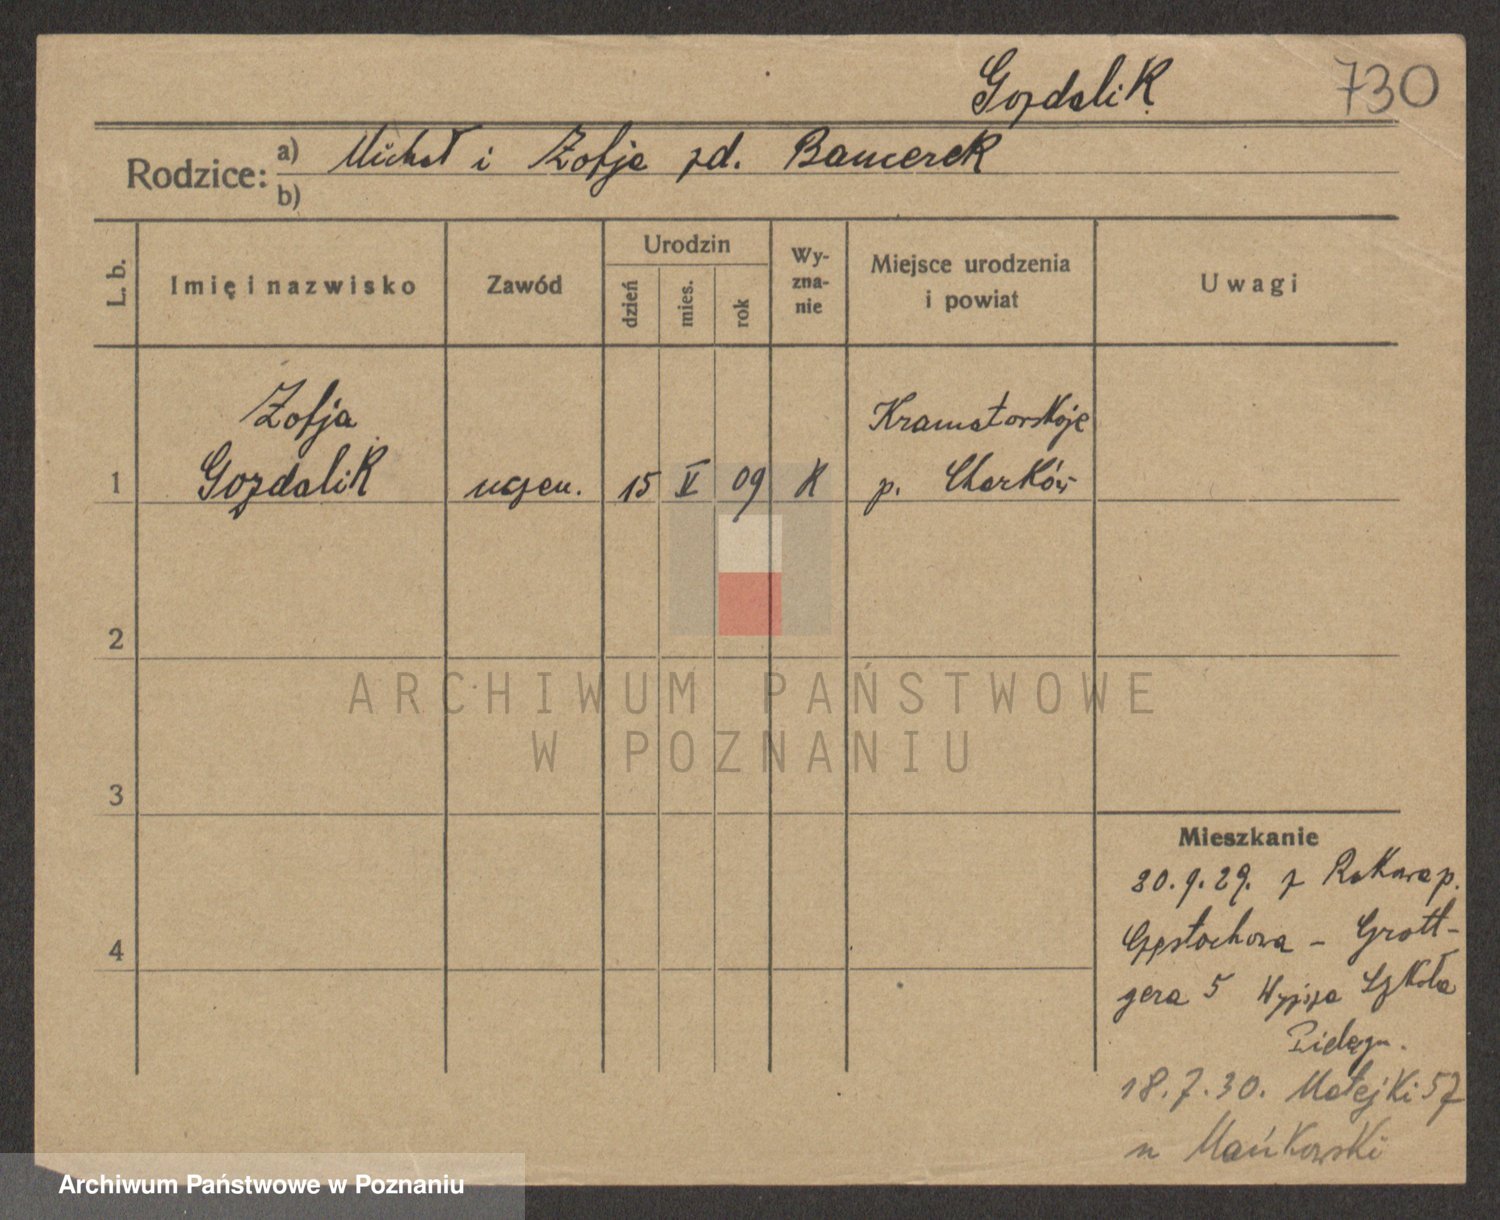 Gozdalik 730
Rodzice: a) Michał i Zofja zd. Bancerek
b)
L. b. Imię i nazwisko Zawód Urodzin dzień mies. rok Wy-zna-nie Miejsce urodzenia i powiat Uwagi
Zofja Kramatorskoje
1 Gozdalik uczen. 15 V 09 K p. Charków
2
ARCHIWUM PAŃSTWOWE
W POZNANIU
3
Mieszkanie
20.9.29. z Rakowa p.
4 Częstochowa - Grott-
gera 5 Wyższa Szkoła
Pielęgn.
18.7.30. Matejki 57
u Mańkowski
Archiwum Państwowe w Poznaniu